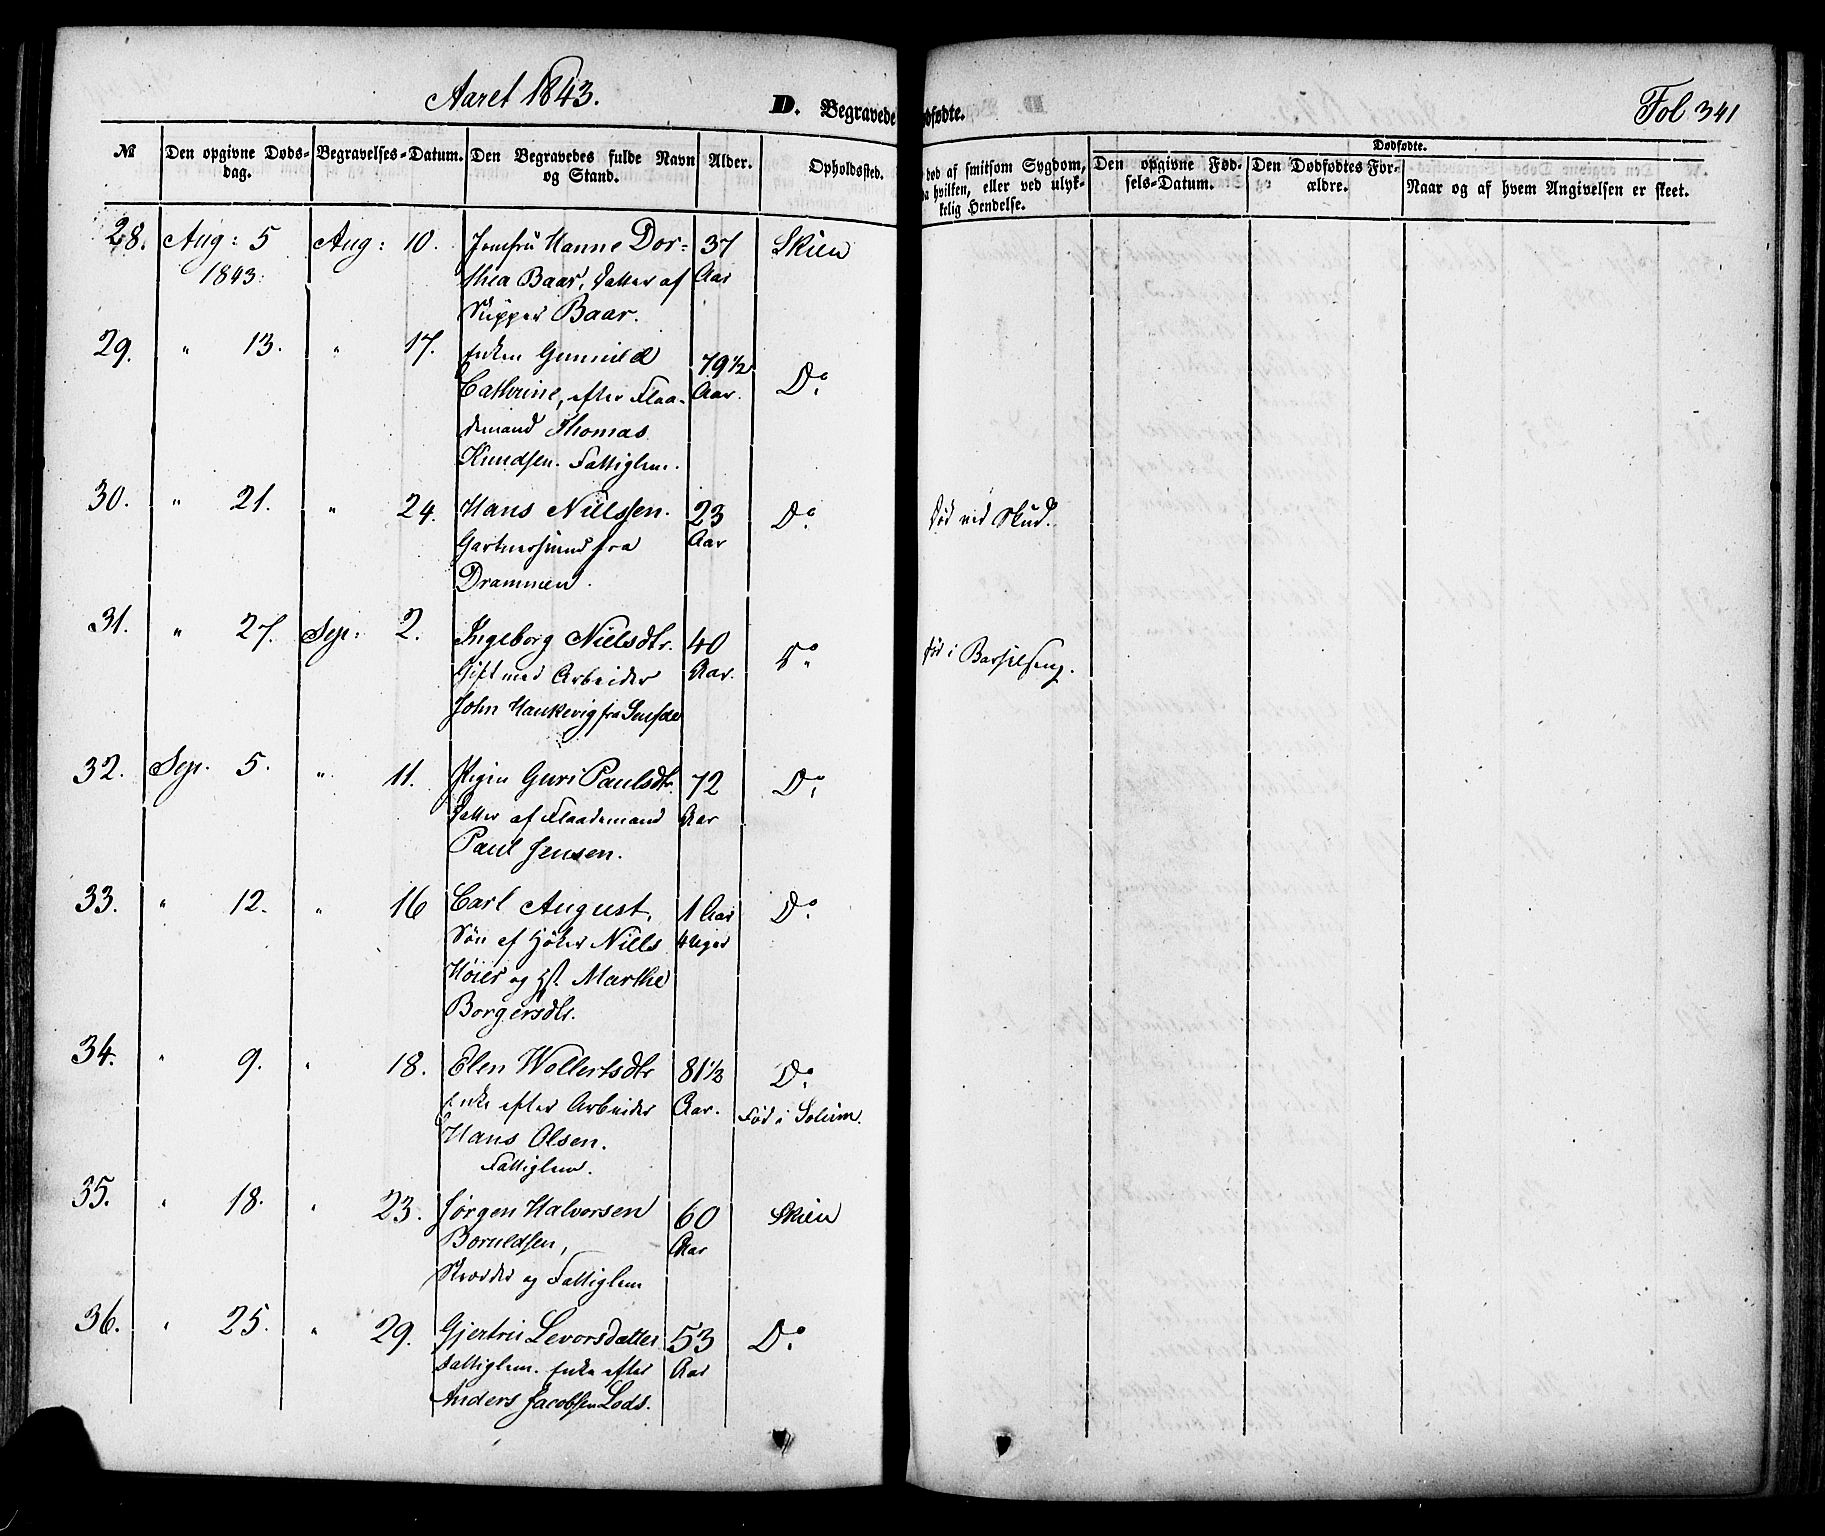 Aaret 1843.
D. Begravede
dfødte.
Fol 341
№
Den opgivne Døds-
dag.
Begravelses-Datum.
Den Begravedes fulde Navn
og Stand.
Alder.
Opholdssted.
død af smitsom Sygdom,
a hvilken, eller ved ulyk-
kelig Hendelse.
Dødfødte.
Den opgivne Fød-
sels-Datum.
Den Dødfødtes For-
ældre.
Naar og af hvem Angivelsen er skeet.
28. Aug: 5 Aug: 10. Jomfru Hanne Dor= 37 Skien
1843. thea Baar, Datter af Aar
Skipper Baar.
29. " 13. " 17. Enken Gunnild 79 1/2 Do
Cathrine, efter Flaa- Aar.
demand Thomas
Knudsen. Fattiglem.
30. " 21. " 24. Hans Nielssen. 23 Do Død ved Skud.
Gartnersvend fra Aar
Drammen.
31. " 27. Sep: 2. Ingeborg Nielsdtr. 40 Do Død i Barselseng.
Gift med Arbeider Aar.
John Haukevig fra
32. Sep. 5. " 11. Pigen Guri Paulsdtr. 72 Do
Datter af Flaademand Aar
Paul Jensen.
33. " 12. " 16 Carl August, 1 Aar Do
Søn af Høker Niels 4 Uger
Høier og Hst. Marthe
Borgersdtr.
34. " 9. " 18. Elen Wollertsdtr 81 1/2 Do
Enke efter Arbeider Aar. Fød i Solum.
Hans Olsen.
Fattiglem.
35. " 18. " 23. Jørgen Halvorsen 60 Skien
Boruldsen, Aar
Skrædder og Fattiglem
36. " 25. " 29. Gjertru Levorsdatter 53 Do
Fattiglem. Enke efter Aar
Anders Jacobsen Lods.